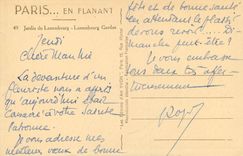 PARIS... EN FLANANT
49 Jardin du Luxembourg - Luxembourg Garden
Jeudi
Chère
La devanture d'un
fleuriste nous a appris
qu'aujourd'hui était
consacré à votre Sainte
Patronne.
Je vous adresse mes
meilleurs vœux de bonne
fête et de bonne santé,
en attendant le plaisir
de vous revoir
Dimanche peut-être ?
Je vous embrasse
tous deux